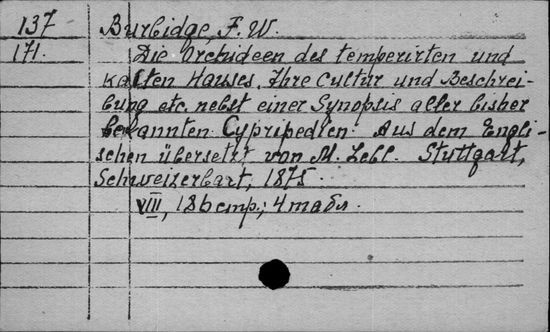 137 Burbidge, F. W.
171. Die Orchideen des temperirten und
kalten Hauses. Ihre Cultur und Beschrei-
bung etc. nebst einer Synopsis aller bisher
bekannten Cypripedien. Aus dem Engli-
schen übersetzt von M. Lebl. Stuttgart,
Schweizerbart, 1875.
VIII, 186 стр.; 4 табл.